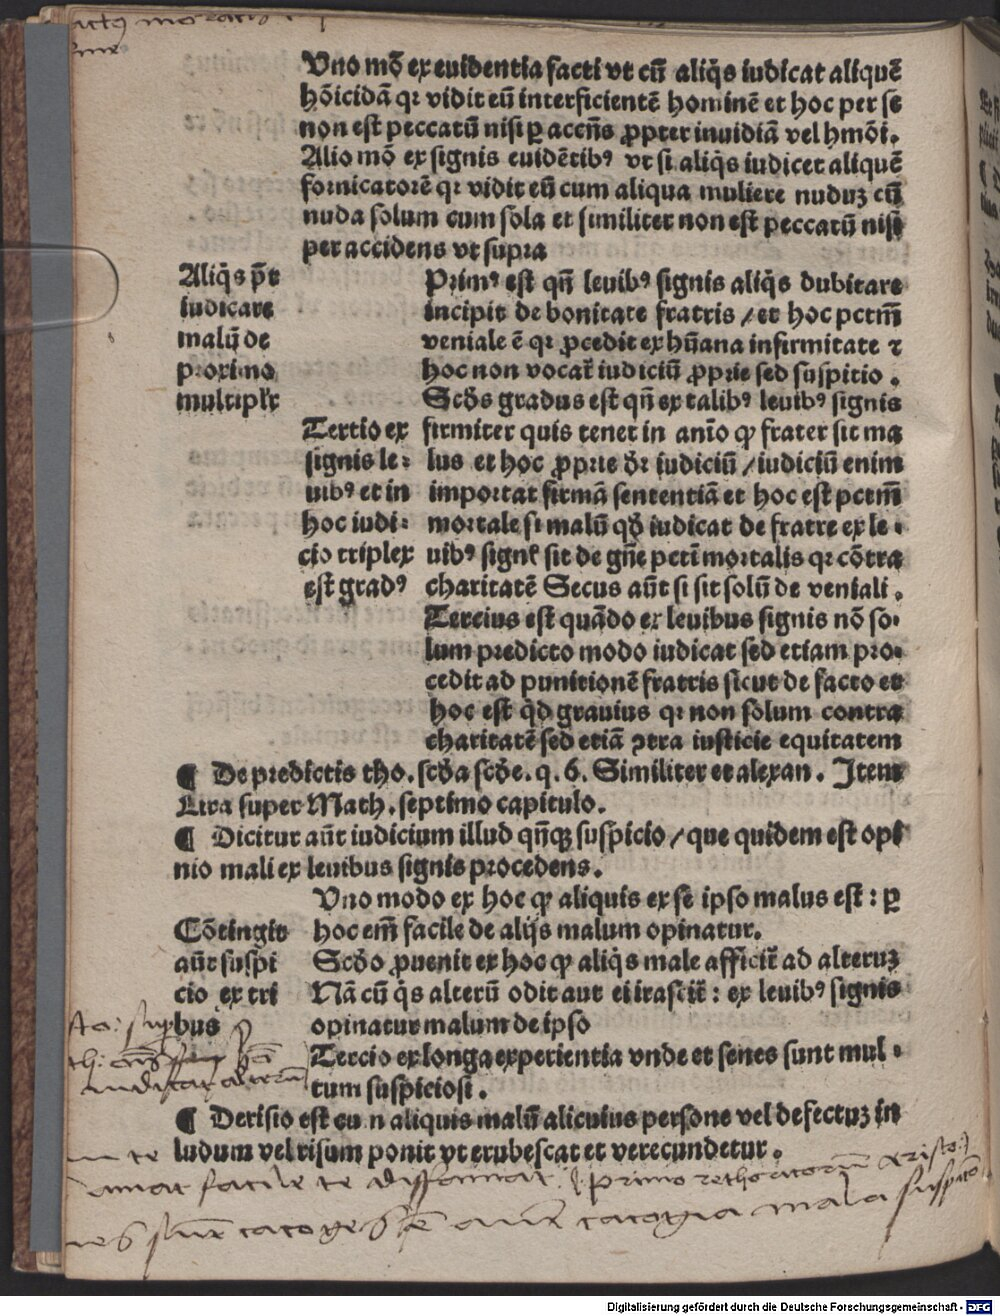 Uno mō ex euidentia facti vt cū aliq̄s iudicat aliquē
hōicidā qꝛ vidit eū interficientē hominē et hoc per se
non est peccatū nisi ꝑ accn̄s ꝓpter inuidiā vel hmōi.
Alio mō ex signis euidētibꝰ vt si aliq̄s iudicet aliquē
fornicatorē qꝛ vidit eū cum aliqua muliere nuduꝫ cū
nuda solum cum sola et similiter non est peccatū nisi
per accidens vt supra
Aliq̄s pōt
iudicare
malū de
proximo
multiplr̄
Tertio ex
signis le⸗
uibꝰ et in
hoc iudi⸗
cio triplex
est gradꝰ
Primꝰ est qn̄ leuibꝰ signis aliq̄s dubitare
incipit de bonitate fratris / et hoc pctm̄
veniale ē qꝛ ꝓcedit ex hūana infirmitate ꞇ
hoc non vocat̄ iudiciū ꝓprie sed suspitio .
Scd̄s gradus est qn̄ ex talibꝰ leuibꝰ signis
firmiter quis tenet in anīo ꝙ frater sit ma
lus et hoc ꝓprie dr̄ iudiciū / iudiciū enim
importat firmā sententiā et hoc est pctm̄
mortale si malū qd̄ iudicat de fratre ex le⸗
uibꝰ signꝭ sit de gn̄e pctī mortalis qꝛ cōtra
charitatē Secus aūt si sit solū de veniali .
Tercius est quādo ex leuibus signis nō so⸗
lum predicto modo iudicat sed etiam pro⸗
cedit ad punitionē fratris sicut de facto et
hoc est qd̄ grauius qꝛ non solum contra
charitatē sed etiā ꝯtra iusticie equitatem
¶ De predictis tho. scd̄a scd̄e. q. 6. Similiter et alexan. Item
Lira super Math. septimo capitulo.
¶ Dicitur aūt iudicium illud qn̄qꝫ suspicio / que quidem est opi
nio mali ex leuibus signis procedens.
Cōtingit
aūt suspi
cio ex tri
bus
Uno modo ex hoc ꝙ aliquis ex se ipso malus est : ꝑ
hoc em̄ facile de alijs malum opinatur.
Scd̄o ꝓuenit ex hoc ꝙ aliq̄s male afficit̄ ad alteruꝫ
Nā cū q̄s alterū odit aut ei irascit̄ : ex leuibꝰ signis
opinatur malum de ipso
Tercio ex longa experientia vnde et senes sunt mul⸗
tum suspiciosi .
¶ Derisio est cu n aliquis malū alicuius persone vel defectuꝫ in
ludum vel risum ponit vt erubescat et verecundetur .
amat facile te diffamat. primo rethoricorum aristo:
cacoges est autem cacogia mala suspitio
Digitalisierung gefördert durch die Deutsche Forschungsgemeinschaft - DFG